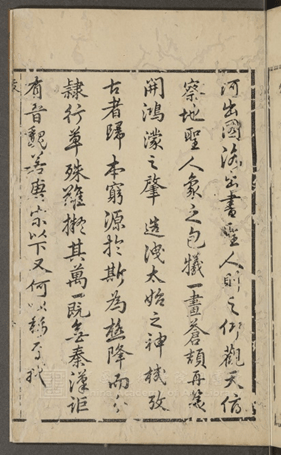 河出圖洛出書聖人則之仰觀天俯
察地聖人象之包犧一畫蒼頡再變
開鴻濛之肇造洩太始之神機攷
古者歸本窮源於斯為極降而分
隸行草殊難擬其萬一既無秦漢詎
有晉魏善與宗以下又何以稱焉哉